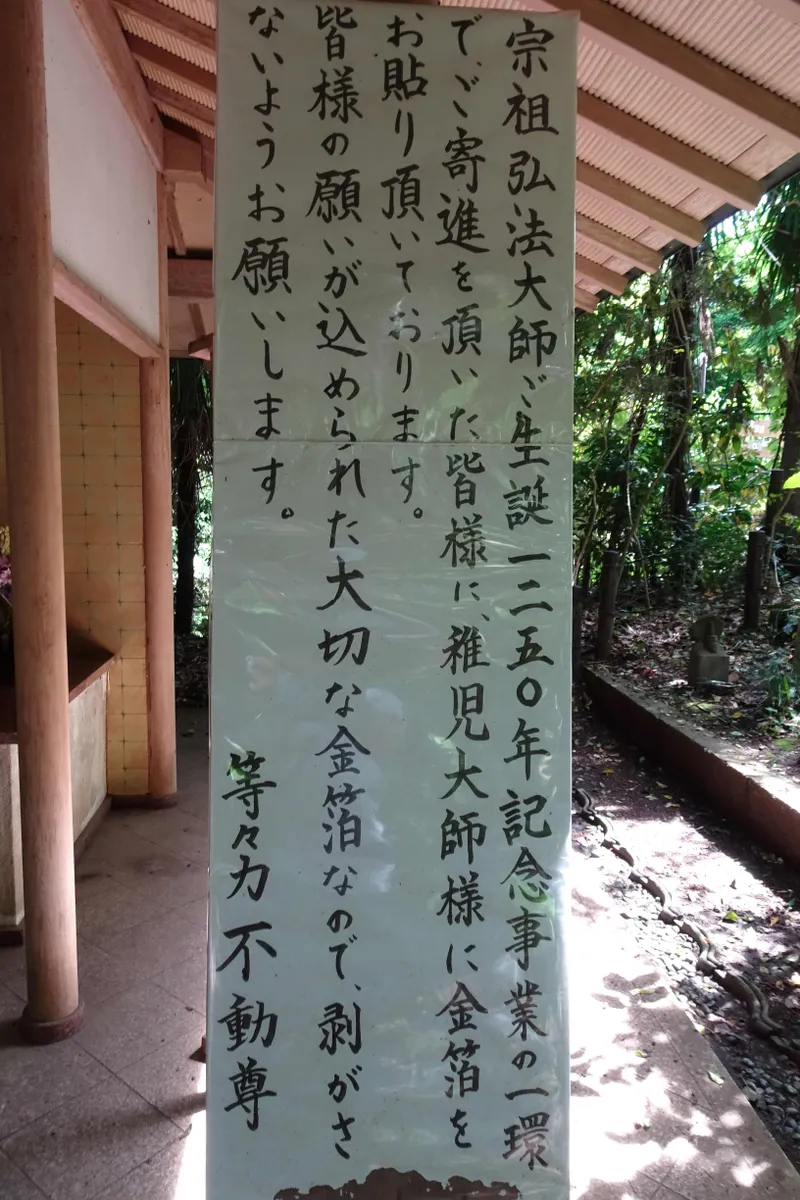 宗祖弘法大師ご生誕一二五〇年記念事業の一環
で、ご寄進を頂いた皆様に、稚児大師様に金箔を
お貼り頂いております。
皆様の願いが込められた大切な金箔なので、剥がさ
ないようお願いします。
等々力不動尊